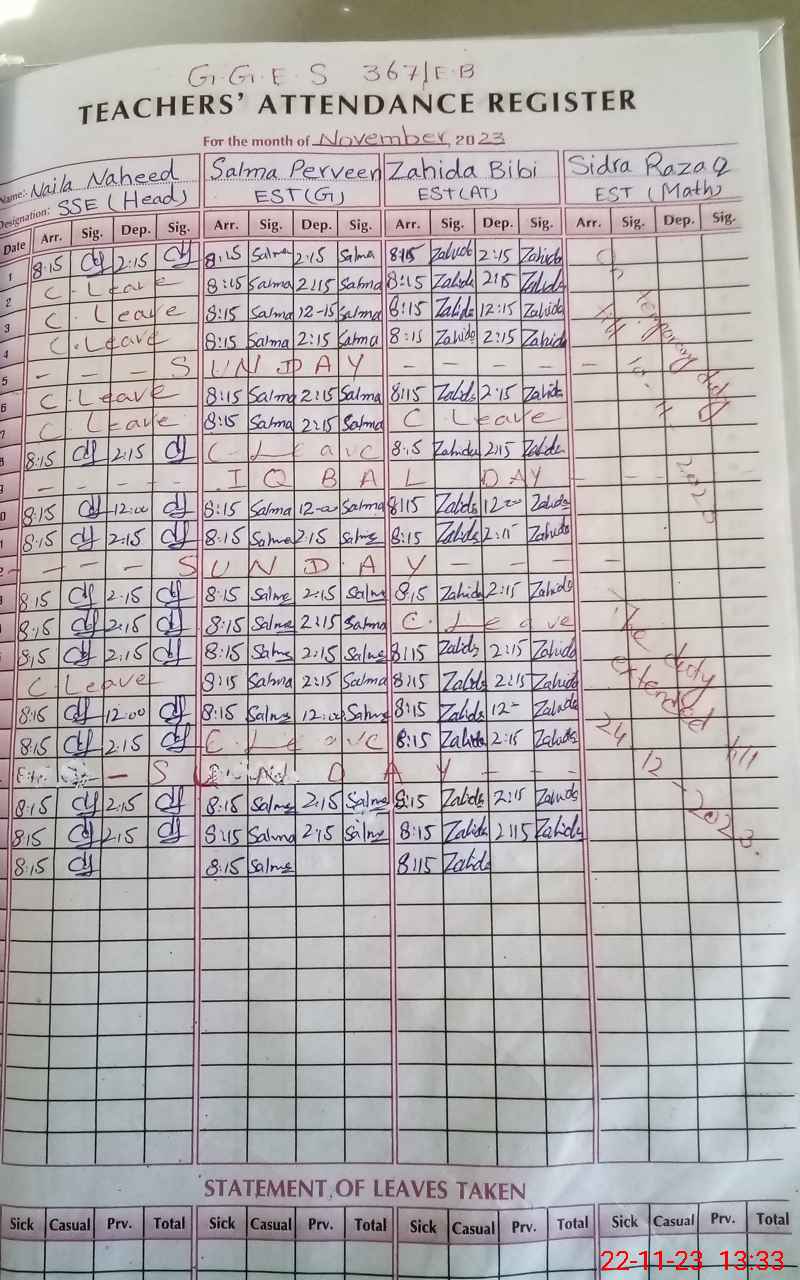 G.G.E.S 367/E.B
TEACHERS' ATTENDANCE REGISTER
For the month of November, 2023
Name:- Naila Naheed Salma Perveen Zahida Bibi Sidra Razaq
Designation: SSE (Head) EST(G) EST(AT) EST (Math)
Date Arr. Sig. Dep. Sig. Arr. Sig. Dep. Sig. Arr. Sig. Dep. Sig. Arr. Sig. Dep. Sig.
1 8:15 2:15 8:15 Salma 2:15 Salma 8:15 Zahida 2:15 Zahida
2 C. Leave 8:15 Salma 2:15 Salma 8:15 Zahida 2:15 Zahida
3 C. Leave 8:15 Salma 12-15 Salma 8:15 Zahida 12:15 Zahida
4 C. Leave 8:15 Salma 2:15 Salma 8:15 Zahida 2:15 Zahida
5 - - - S U N D A Y - - - - -
6 C. Leave 8:15 Salma 2:15 Salma 8:15 Zahida 2:15 Zahida
7 C. Leave 8:15 Salma 2:15 Salma C Leave
8 8:15 2:15 C. Leave 8:15 Zahida 2:15 Zahida
- - - - I Q B A L D A Y - - -
0 8:15 12:00 8:15 Salma 12-00 Salma 8:15 Zahida 12-00 Zahida
1 8:15 2:15 8:15 Salma 2:15 Salma 8:15 Zahida 2:15 Zahida
2 - - - S U N D A Y - - - -
8:15 2:15 8:15 Salma 2:15 Salma 8:15 Zahida 2:15 Zahida
8:15 2:15 8:15 Salma 2:15 Salma C. Leave
8:15 2:15 8:15 Salma 2:15 Salma 8:15 Zahida 2:15 Zahida
C. Leave 8:15 Salma 2:15 Salma 8:15 Zahida 2:15 Zahida
8:15 12:00 8:15 Salma 12:00 Salma 8:15 Zahida 12- Zahida
8:15 2:15 C. Leave 8:15 Zahida 2:15 Zahida
- S U N D A Y - - -
8:15 2:15 8:15 Salma 2:15 Salma 8:15 Zahida 2:15 Zahida
8:15 2:15 8:15 Salma 2:15 Salma 8:15 Zahida 2:15 Zahida
8:15 8:15 Salma 8:15 Zahida
temporary duty
till
2023
The duty
extended till
24 - 12 - 2023.
STATEMENT OF LEAVES TAKEN
Sick Casual Prv. Total Sick Casual Prv. Total Sick Casual Prv. Total Sick Casual Prv. Total
22-11-23 13:33